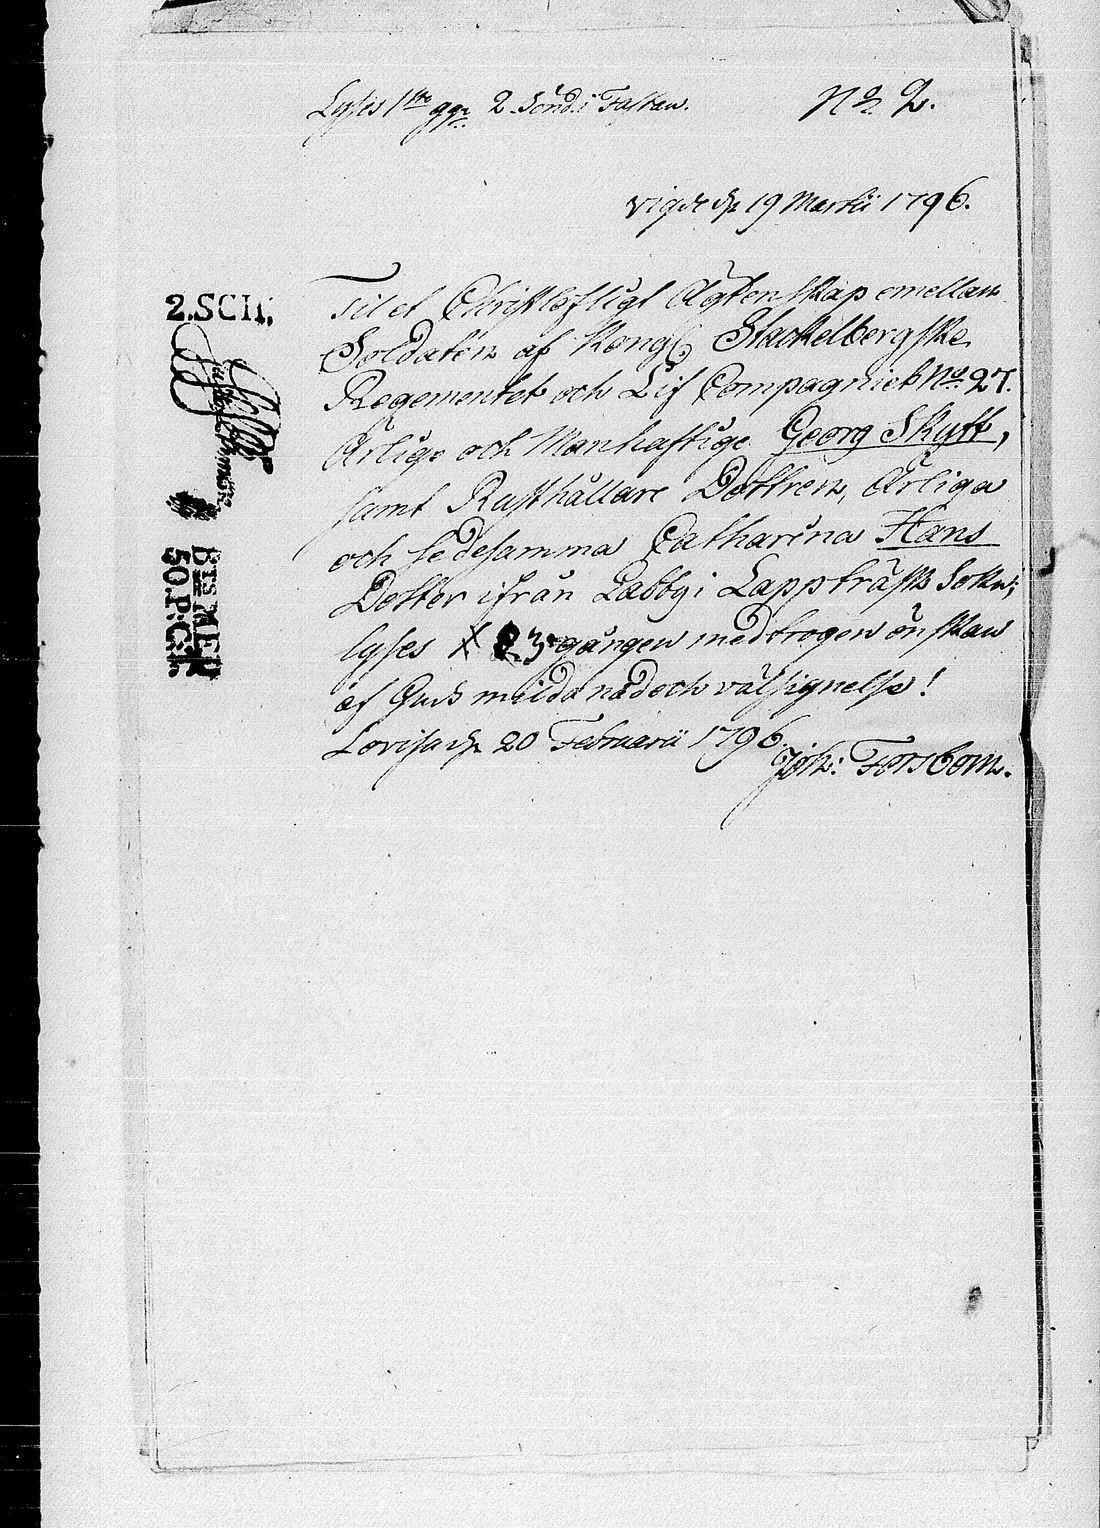 Lyses 1sta ggn 2 Sönd. i Fastan. No 2.
vigde d. 19 Martii 1796.
2.SCH.
Til et Christeligt Ägtenskap emellan
Soldaten af Kongl Stackelbergske
Regementet och Lif Compagniet No. 27.
Ärlige och Manhaftige Georg Skytt,
samt Rusthållare Dottren, Ärliga
och sedesamma Catharina Hans
Dotter ifrån Labby i Lappträsk Sokn;
lyses 3. gången med trogen önskan
af Guds milda nåd och välsignelse!
Lovisa d. 20 Februarii 1796.
Joh: Forsbom.
50.P.C.